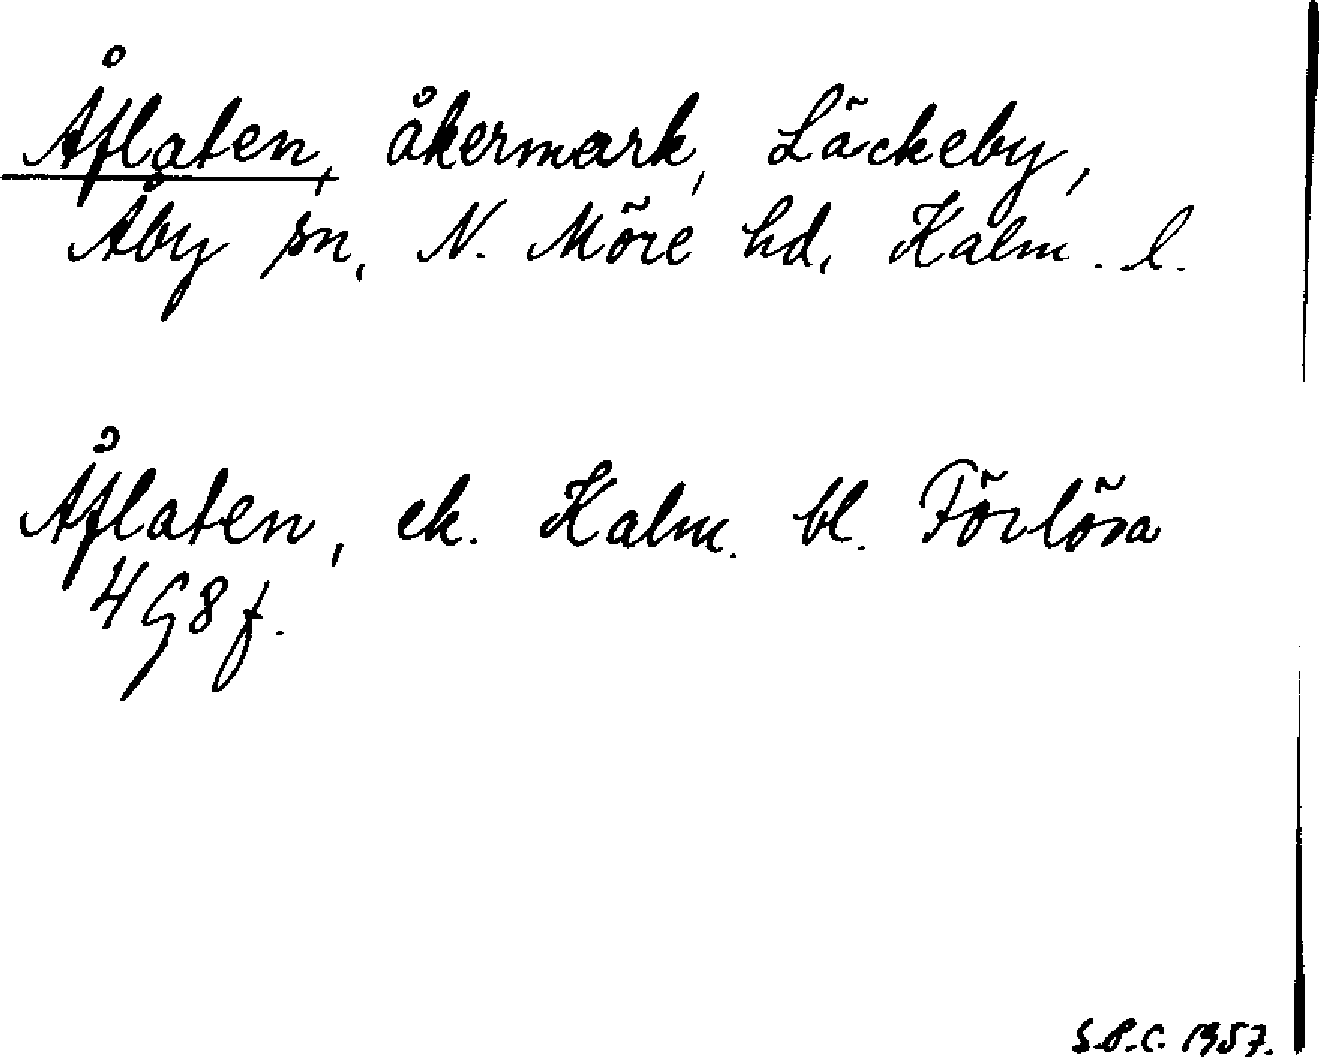 Åflaten, åkermark, Läckeby,
Åby sn, N. Möre hd, Kalm. l.
Åflaten, ek. Kalm. bl. Förlösa
4G8f.
S.P.C. 1957.